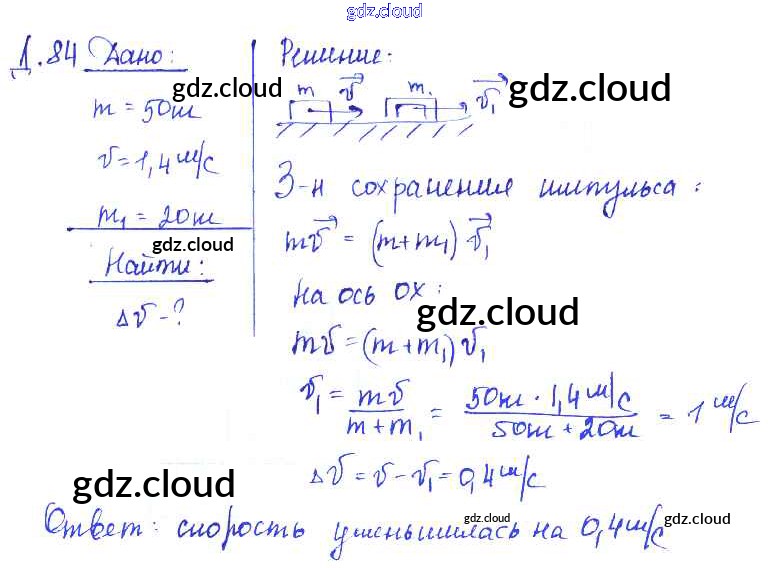 gdz.cloud
Д.84 Дано:
m = 50т
v = 1,4 м/с
m₁ = 20т
Найти:
Δv - ?
Решение:
m v⃗ m₁ v⃗₁
gdz.cloud
gdz.cloud
З-н сохранения импульса:
mv⃗ = (m+m₁) v⃗₁
gdz.cloud
На ось OX:
gdz.cloud
mv = (m+m₁)v₁
v₁ = mv / (m+m₁) = 50т · 1,4 м/с / (50т + 20т) = 1 м/с
Δv = v - v₁ = 0,4 м/с
gdz.cloud
Ответ: скорость уменьшилась на 0,4 м/с
gdz.cloud
gdz.cloud